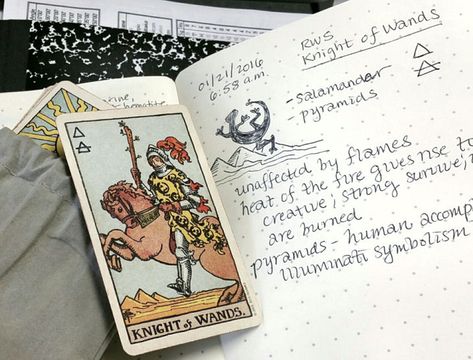 01/21/2016
6:58 a.m.
RWS
Knight of Wands
-salamander
-pyramids
unaffected by flames
heat of the fire gives rise to
creative; strong survive;
are burned
pyramids - human accomp
illuminati symbolism
KNIGHT of WANDS.